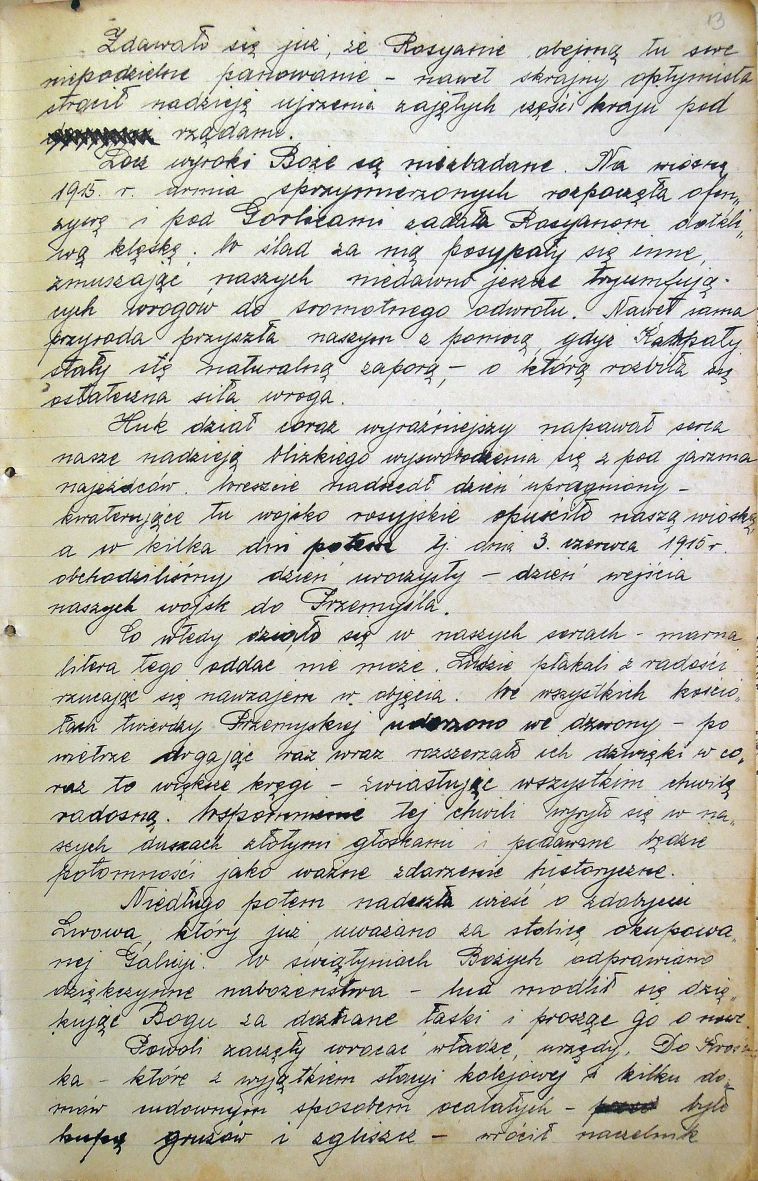 13
Zdawało się już, że Rosyanie obejmą tu swe
niepodzielne panowanie – nawet skrajny optymista
stracił nadzieję ujrzenia zajętych części kraju pod
rządami.
Lecz wyroki Boże są niezbadane. Na wiosnę
1915. r. armia sprzymierzonych rozpoczęła ofen„
zywę i pod Gorlicami zadała Rosyanom dotkli„
wą klęskę. W ślad za nią posypały się inne,
zmuszając naszych niedawno jeszcze tryumfują-
cych wrogów do sromotnego odwrotu. Nawet sama
przyroda przyszła naszym z pomocą, gdyż Karpaty
stały się naturalną zaporą, – o którą rozbiła się
ostateczna siła wroga.
Huk dział coraz wyraźniejszy napawał serca
nasze nadzieją blizkiego wyswobodzenia się z pod jarzma
najezdców. Wreszcie nadszedł dzień upragniony –
kwaterujące tu wojsko rosyjskie opuściło naszą wioskę,
a w kilka dni potem tj. dnia 3. czerwca 1915 r.
obchodziliśmy dzień uroczysty – dzień wejścia
naszych wojsk do Przemyśla.
Co wtedy działo się w naszych sercach – marna
litera tego oddać nie może. Ludzie płakali z radości
rzucając się nawzajem w objęcia. We wszystkich kościo„
łach twierdzy Przemyskiej uderzono we dzwony – po
wietrze drgając raz wraz rozszerzało ich dźwięki w co„
raz to większe kręgi – zwiastując wszystkim chwilę
radosną. Wspomnienie tej chwili wyrył się w na„
szych duszach złotymi głoskami i podawane będzie
potomności jako ważne zdarzenie historyczne.
Niedługo potem nadeszła wieść o zdobyciu
Lwowa, który już uważano za stolicę okupowa„
nej Galicyi. W świątyniach Bożych odprawiano
dziękczynne nabożeństwa – lud modlił się dzię„
kując Bogu za doznane łaski i prosząc go o nowe.
Powoli zaczęły wracać władze, urzędy. Do Krośn„
ka – które z wyjątkiem stacyi kolejowej i kilku do„
mów cudownym sposobem ocalałych – było
kupą gruzów i zgliszcz – wrócił naczelnik